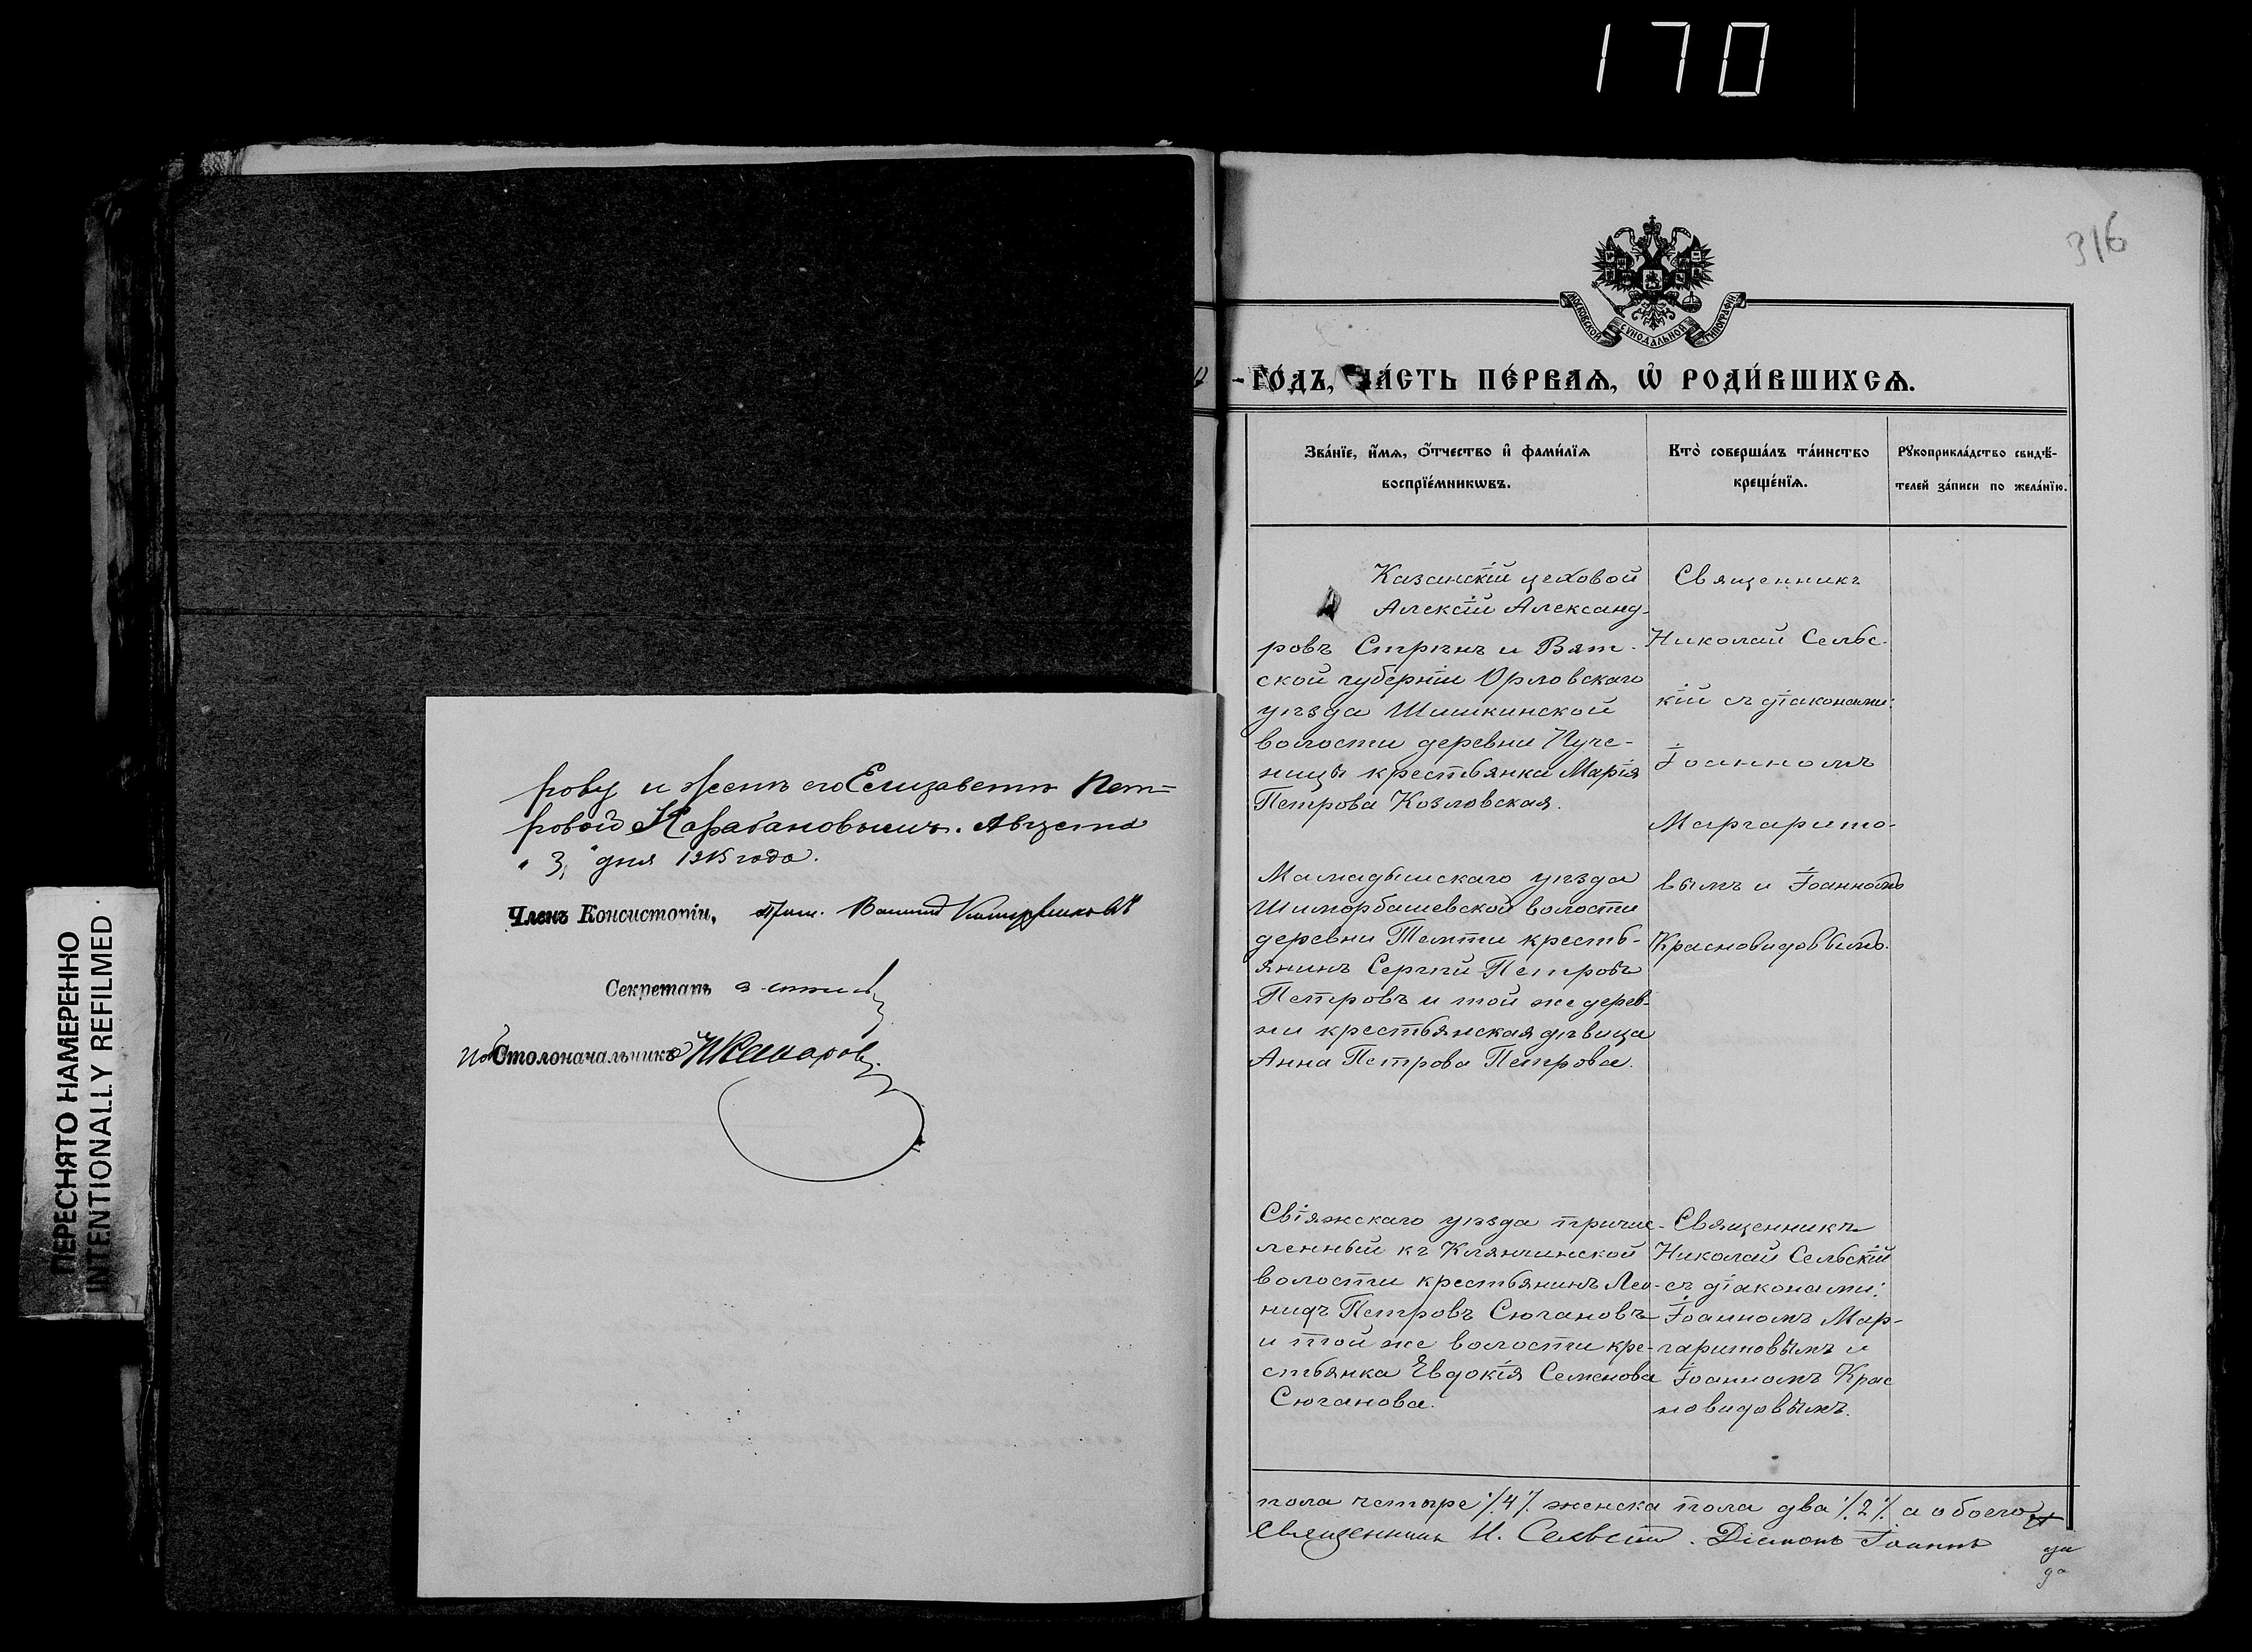 170
ПЕРЕСНЯТО НАМЕРЕННО
INTENTIONALLY REFILMED
рову и женѣ его Елизаветѣ Пет=
ровой Карабановымъ. Августа
" 3 " дня 1915 года.
Членъ Консисторіи, Прот.
Секретарь
Столоначальникъ
316
МОСКОВСКОЙ СѴНОДАЛЬНОЙ ТИПОГРАФІИ
-ГО́ДЪ, ЧА́СТЬ ПЕ́РВАѦ, Ѡ҆ РОДИ́ВШИХСѦ.
Зва́нїе, и҆́мѧ, ѻ҆́тчество и҆ фами́лїѧ
воспрїе́мникѡвъ.
Кто̀ соверша́лъ та́инство
креще́нїѧ.
Рꙋкоприкла́дство свидѣ́-
телей за́писи по жела́нїю.
Казанскій цеховой
Алексій Александ-
ровъ Стринъ и Вят-
ской губерніи Орловскаго
уѣзда Шишкинской
волости деревни Пуче-
ницы крестьянка Марія
Петрова Козловская.
Священникъ
Николай Сельс-
кій съ діаконами:
Іоанномъ
Маргарито-
вымъ и Іоанномъ
Красновидовымъ.
Мамадышскаго уѣзда
Шиморбашевской волости
деревни Темти кресть-
янинъ Сергѣй Петровъ
Петровъ и той же дерев-
ни крестьянская дѣвица
Анна Петрова Петрова.
Свіяжскаго уѣзда причис-
ленный къ Клянчинской
волости крестьянинъ Лео-
нидъ Петровъ Сюгановъ
и той же волости кре-
стьянка Евдокія Семенова
Сюганова.
Священникъ
Николай Сельскій
съ діаконами:
Іоанномъ Мар-
гаритовымъ и
Іоанномъ Крас
новидовымъ.
пола четыре ./4/. женска пола два ./2/. а обоего
Священникъ Н. Сельскій. Діаконъ Іоаннъ